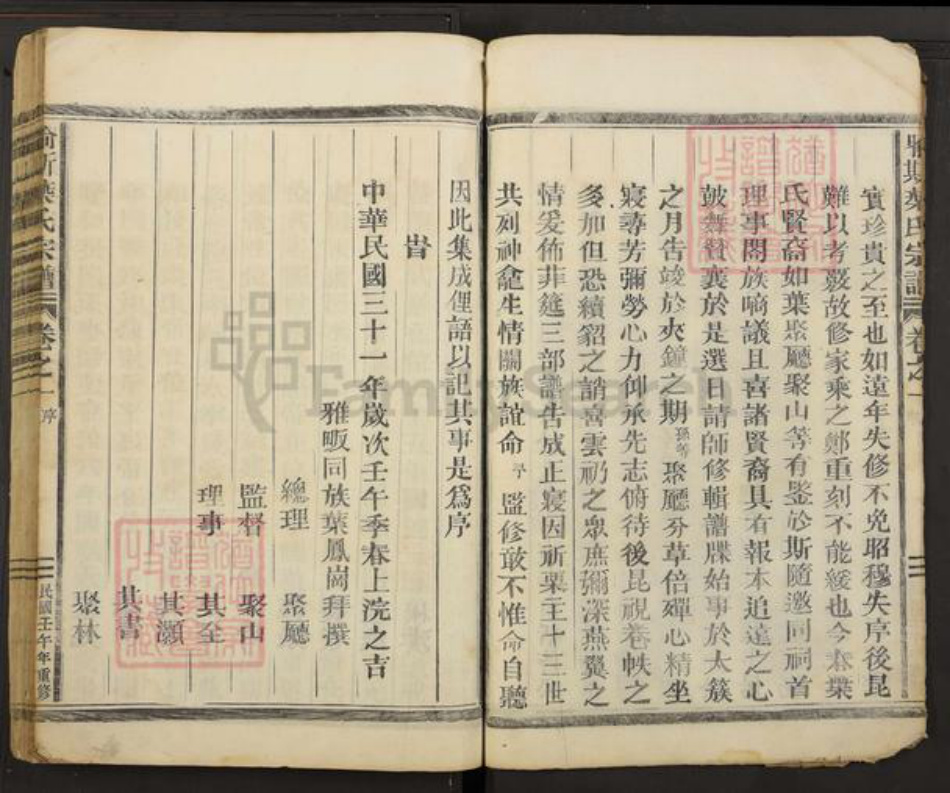 葉氏宗譜 卷之一
實珍貴之至也如遠年失修不免昭穆失序後昆
難以考覈故修家乘之鄭重刻不能緩也今本葉
氏賢裔如葉聚廳聚山等有鑒於斯隨邀同祠首
理事閤族嘀議且喜諸賢裔具有報本追遠之心
皷舞贊襄於是選日請師修輯譜牒始事於太簇
之月告竣於夾鐘之期孫等聚廳芬草倍殫心精坐
寢尋芳彌勞心力仰承先志俯待後昆視卷帙之
多加但恐續貂之誚喜雲礽之眾庶彌深燕翼之
情爰佈菲筵三部譜告成正寢因祈栗主十三世
共列神龕生情關族誼命予監修敢不惟命自聽
因此集成俚語以記其事是為序
旹
中華民國三十一年歲次壬午季春上浣之吉
雅畈同族葉鳳崗拜撰
總理 聚廳
監督 聚山
理事 其全
其瀬
其書
聚林
葉氏宗譜 卷之一 序
民國壬午年重修
FamilySearch